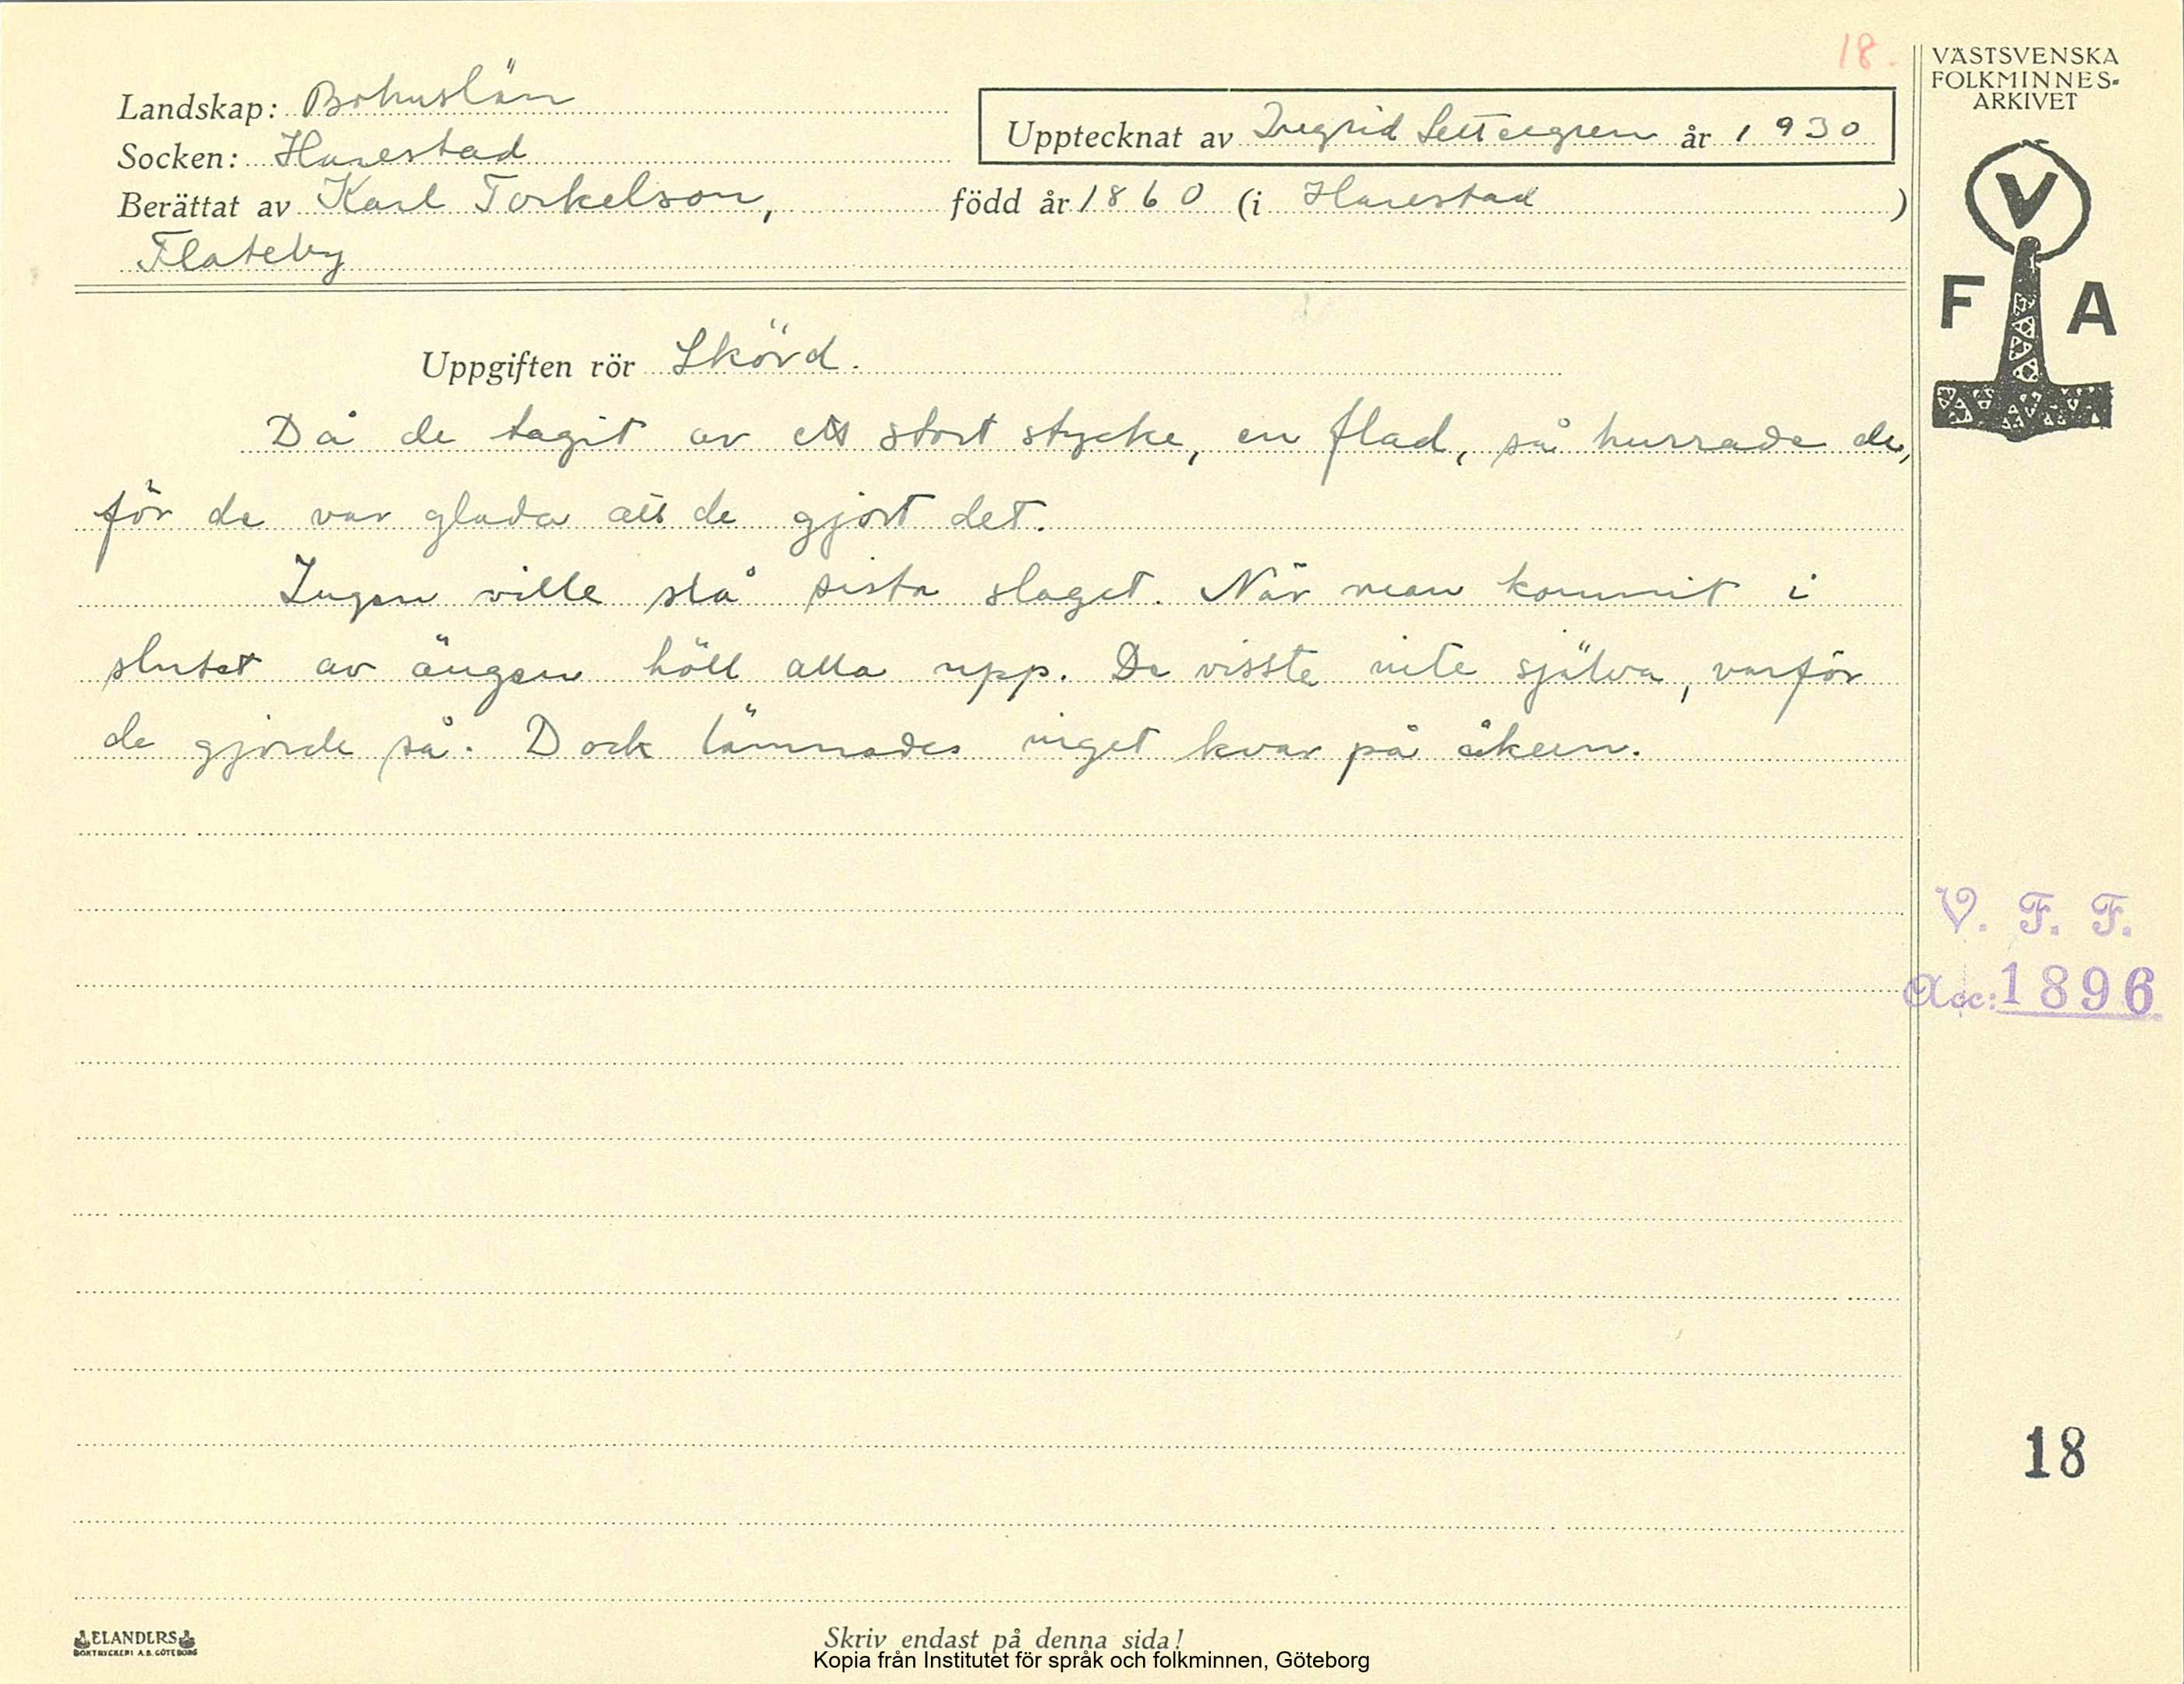 18.
VÄSTSVENSKA
FOLKMINNES-
ARKIVET
Landskap: Bohuslän
Upptecknat av Ingrid Settergren år 1930
Socken: Harestad
Berättat av Karl Torkelson, född år 1860 (i Harestad )
Flateby
V
F A
Uppgiften rör Skörd.
Då de tagit av ett stort stycke, en flad, så hurrade de,
för de var glada att de gjort det.
Ingen ville slå sista slaget. När man kommit i
slutet av ängen höll alla upp. De visste inte själva, varför
de gjorde så. Dock lämnades inget kvar på åkern.
V. F. F.
Acc: 1896
18
ELANDERS
BOKTRYCKERI A.B. GÖTEBORG
Skriv endast på denna sida!
Kopia från Institutet för språk och folkminnen, Göteborg